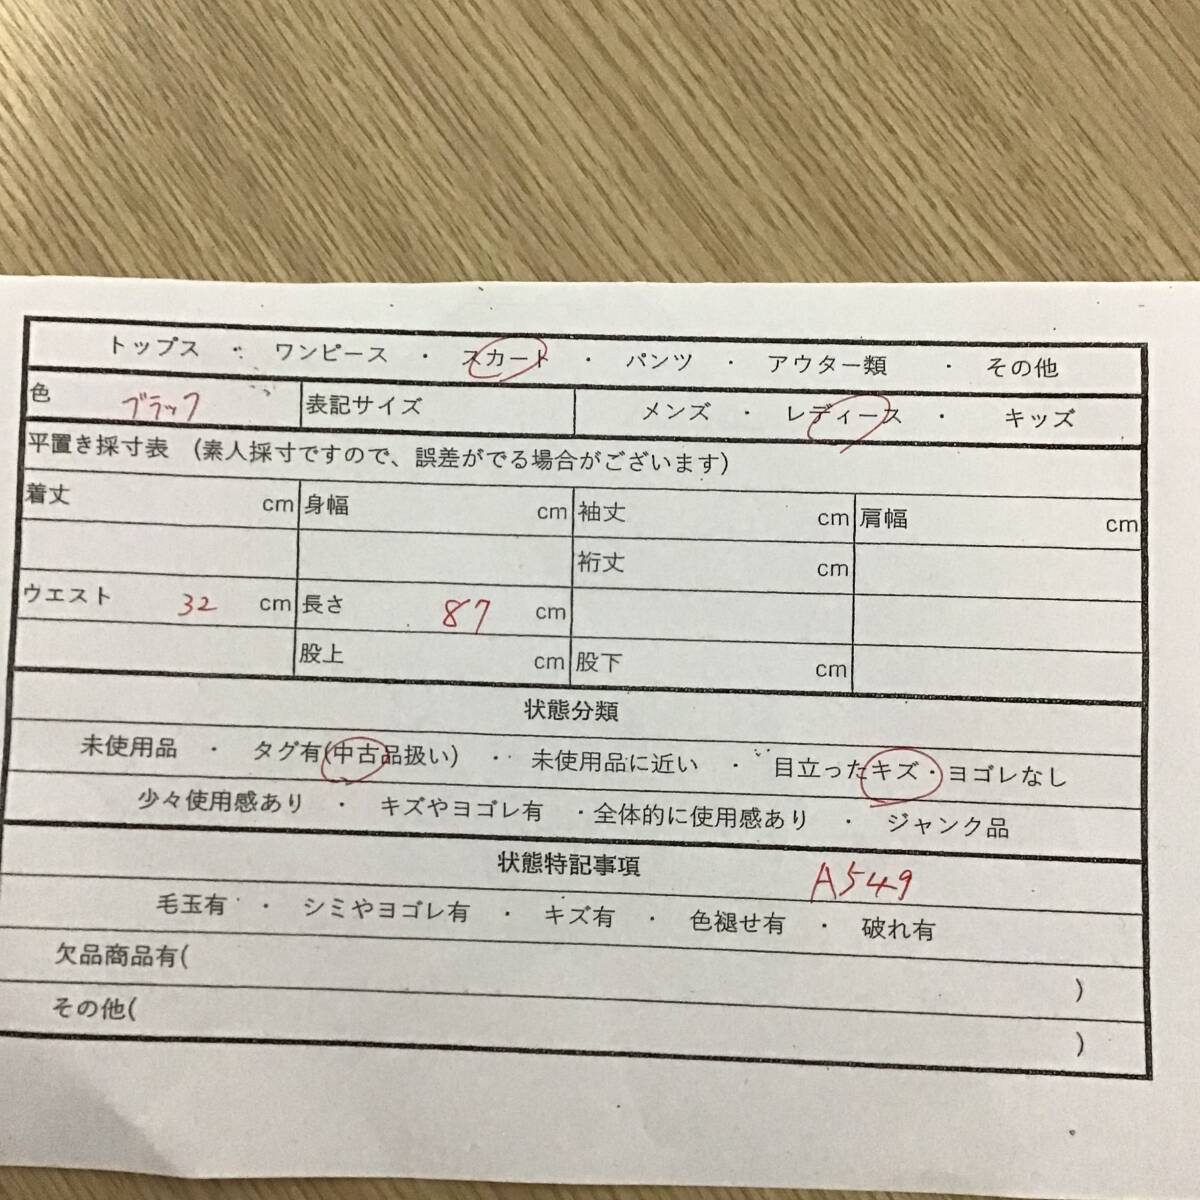 トップス ・ ワンピース ・ スカート ・ パンツ ・ アウター類 ・ その他
色 ブラック 表記サイズ メンズ ・ レディース ・ キッズ
平置き採寸表 (素人採寸ですので、誤差がでる場合がございます)
着丈 cm 身幅 cm 袖丈 cm 肩幅 cm
裄丈 cm
ウエスト 32 cm 長さ 87 cm
股上 cm 股下 cm
状態分類
未使用品 ・ タグ有(中古品扱い) ・ 未使用品に近い ・ 目立ったキズ・ヨゴレなし
少々使用感あり ・ キズやヨゴレ有 ・全体的に使用感あり ・ ジャンク品
状態特記事項 A549
毛玉有 ・ シミやヨゴレ有 ・ キズ有 ・ 色褪せ有 ・ 破れ有
欠品商品有( )
その他( )